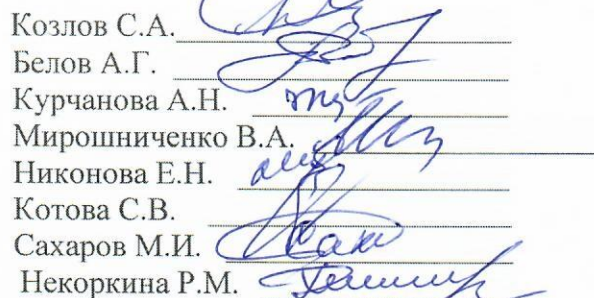 Козлов С.А.
Белов А.Г.
Курчанова А.Н.
Мирошниченко В.А.
Никонова Е.Н.
Котова С.В.
Сахаров М.И.
Некоркина Р.М.